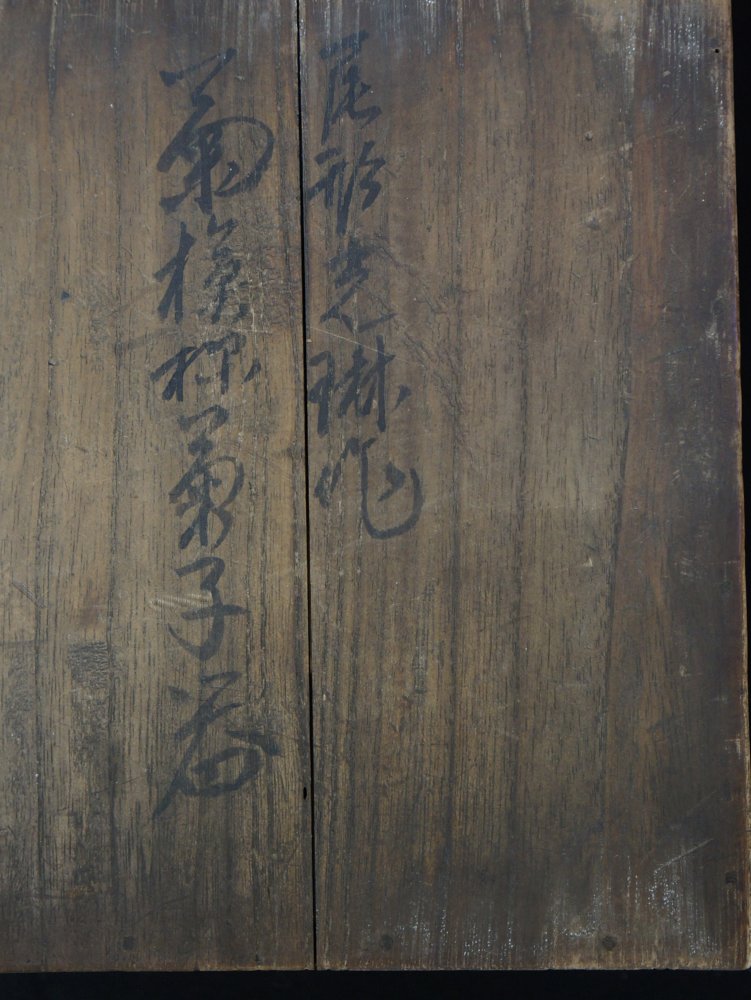 尾形光琳作
菊模様菓子器